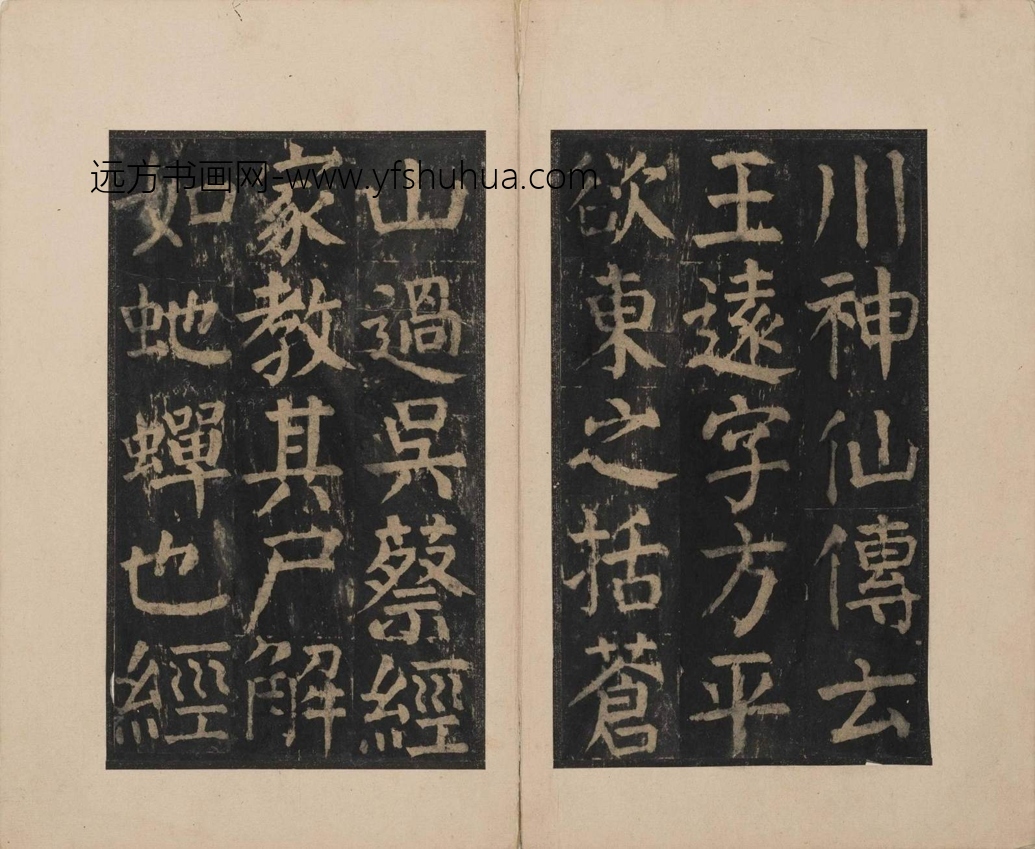 川神仙傳云
王遠字方平
欲東之括蒼
山過吳蔡經
家教其尸解
如虵蟬也經
远方书画网-www.yfshuhua.com